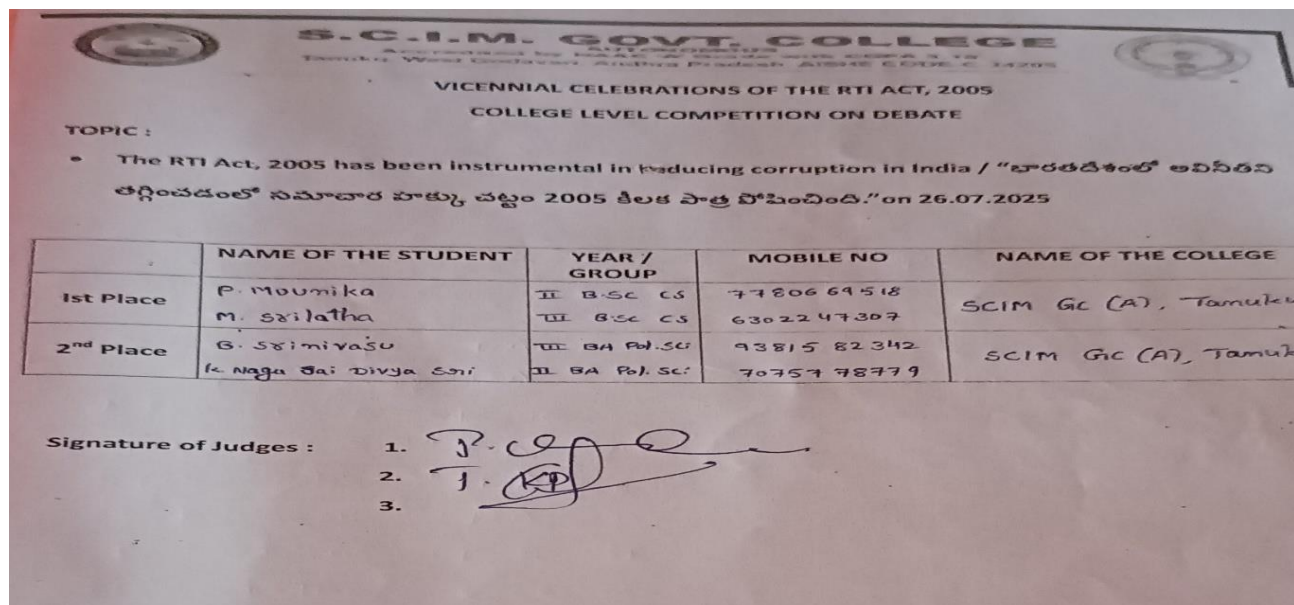 S.C.I.M. GOVT. COLLEGE
AUTONOMOUS
Accredited by NAAC "A" Grade with CGPA
Tanuku, West Godavari, Andhra Pradesh, AISHE CODE-C
VICENNIAL CELEBRATIONS OF THE RTI ACT, 2005
COLLEGE LEVEL COMPETITION ON DEBATE
TOPIC :
• The RTI Act, 2005 has been instrumental in reducing corruption in India / "భారతదేశంలో అవినీతిని
తగ్గించడంలో సమాచార హక్కు చట్టం 2005 కీలక పాత్ర పోషించింది."on 26.07.2025
NAME OF THE STUDENT YEAR / GROUP MOBILE NO NAME OF THE COLLEGE
Ist Place P. Mounika II B.Sc CS 7780669518 SCIM GC (A), Tanuku
M. Srilatha III B.Sc CS 6302247307
2nd Place G. Srinivasu III BA Pol.Sci 93815 82342 SCIM GC (A), Tanuk
K Naga Sai Divya Sri II BA Pol. Sc: 70757 78779
Signature of Judges : 1. P.
2. T. KP
3.